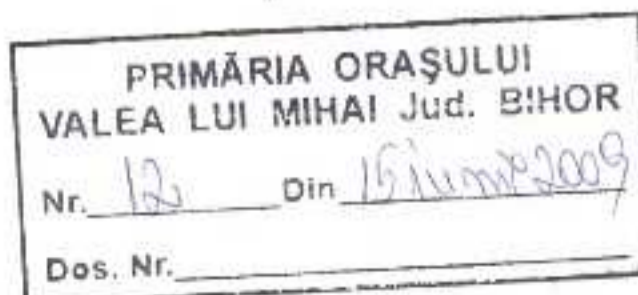 PRIMĂRIA ORAŞULUI
VALEA LUI MIHAI Jud. BIHOR
Nr. 12 Din 15 iunie 2009
Dos. Nr.